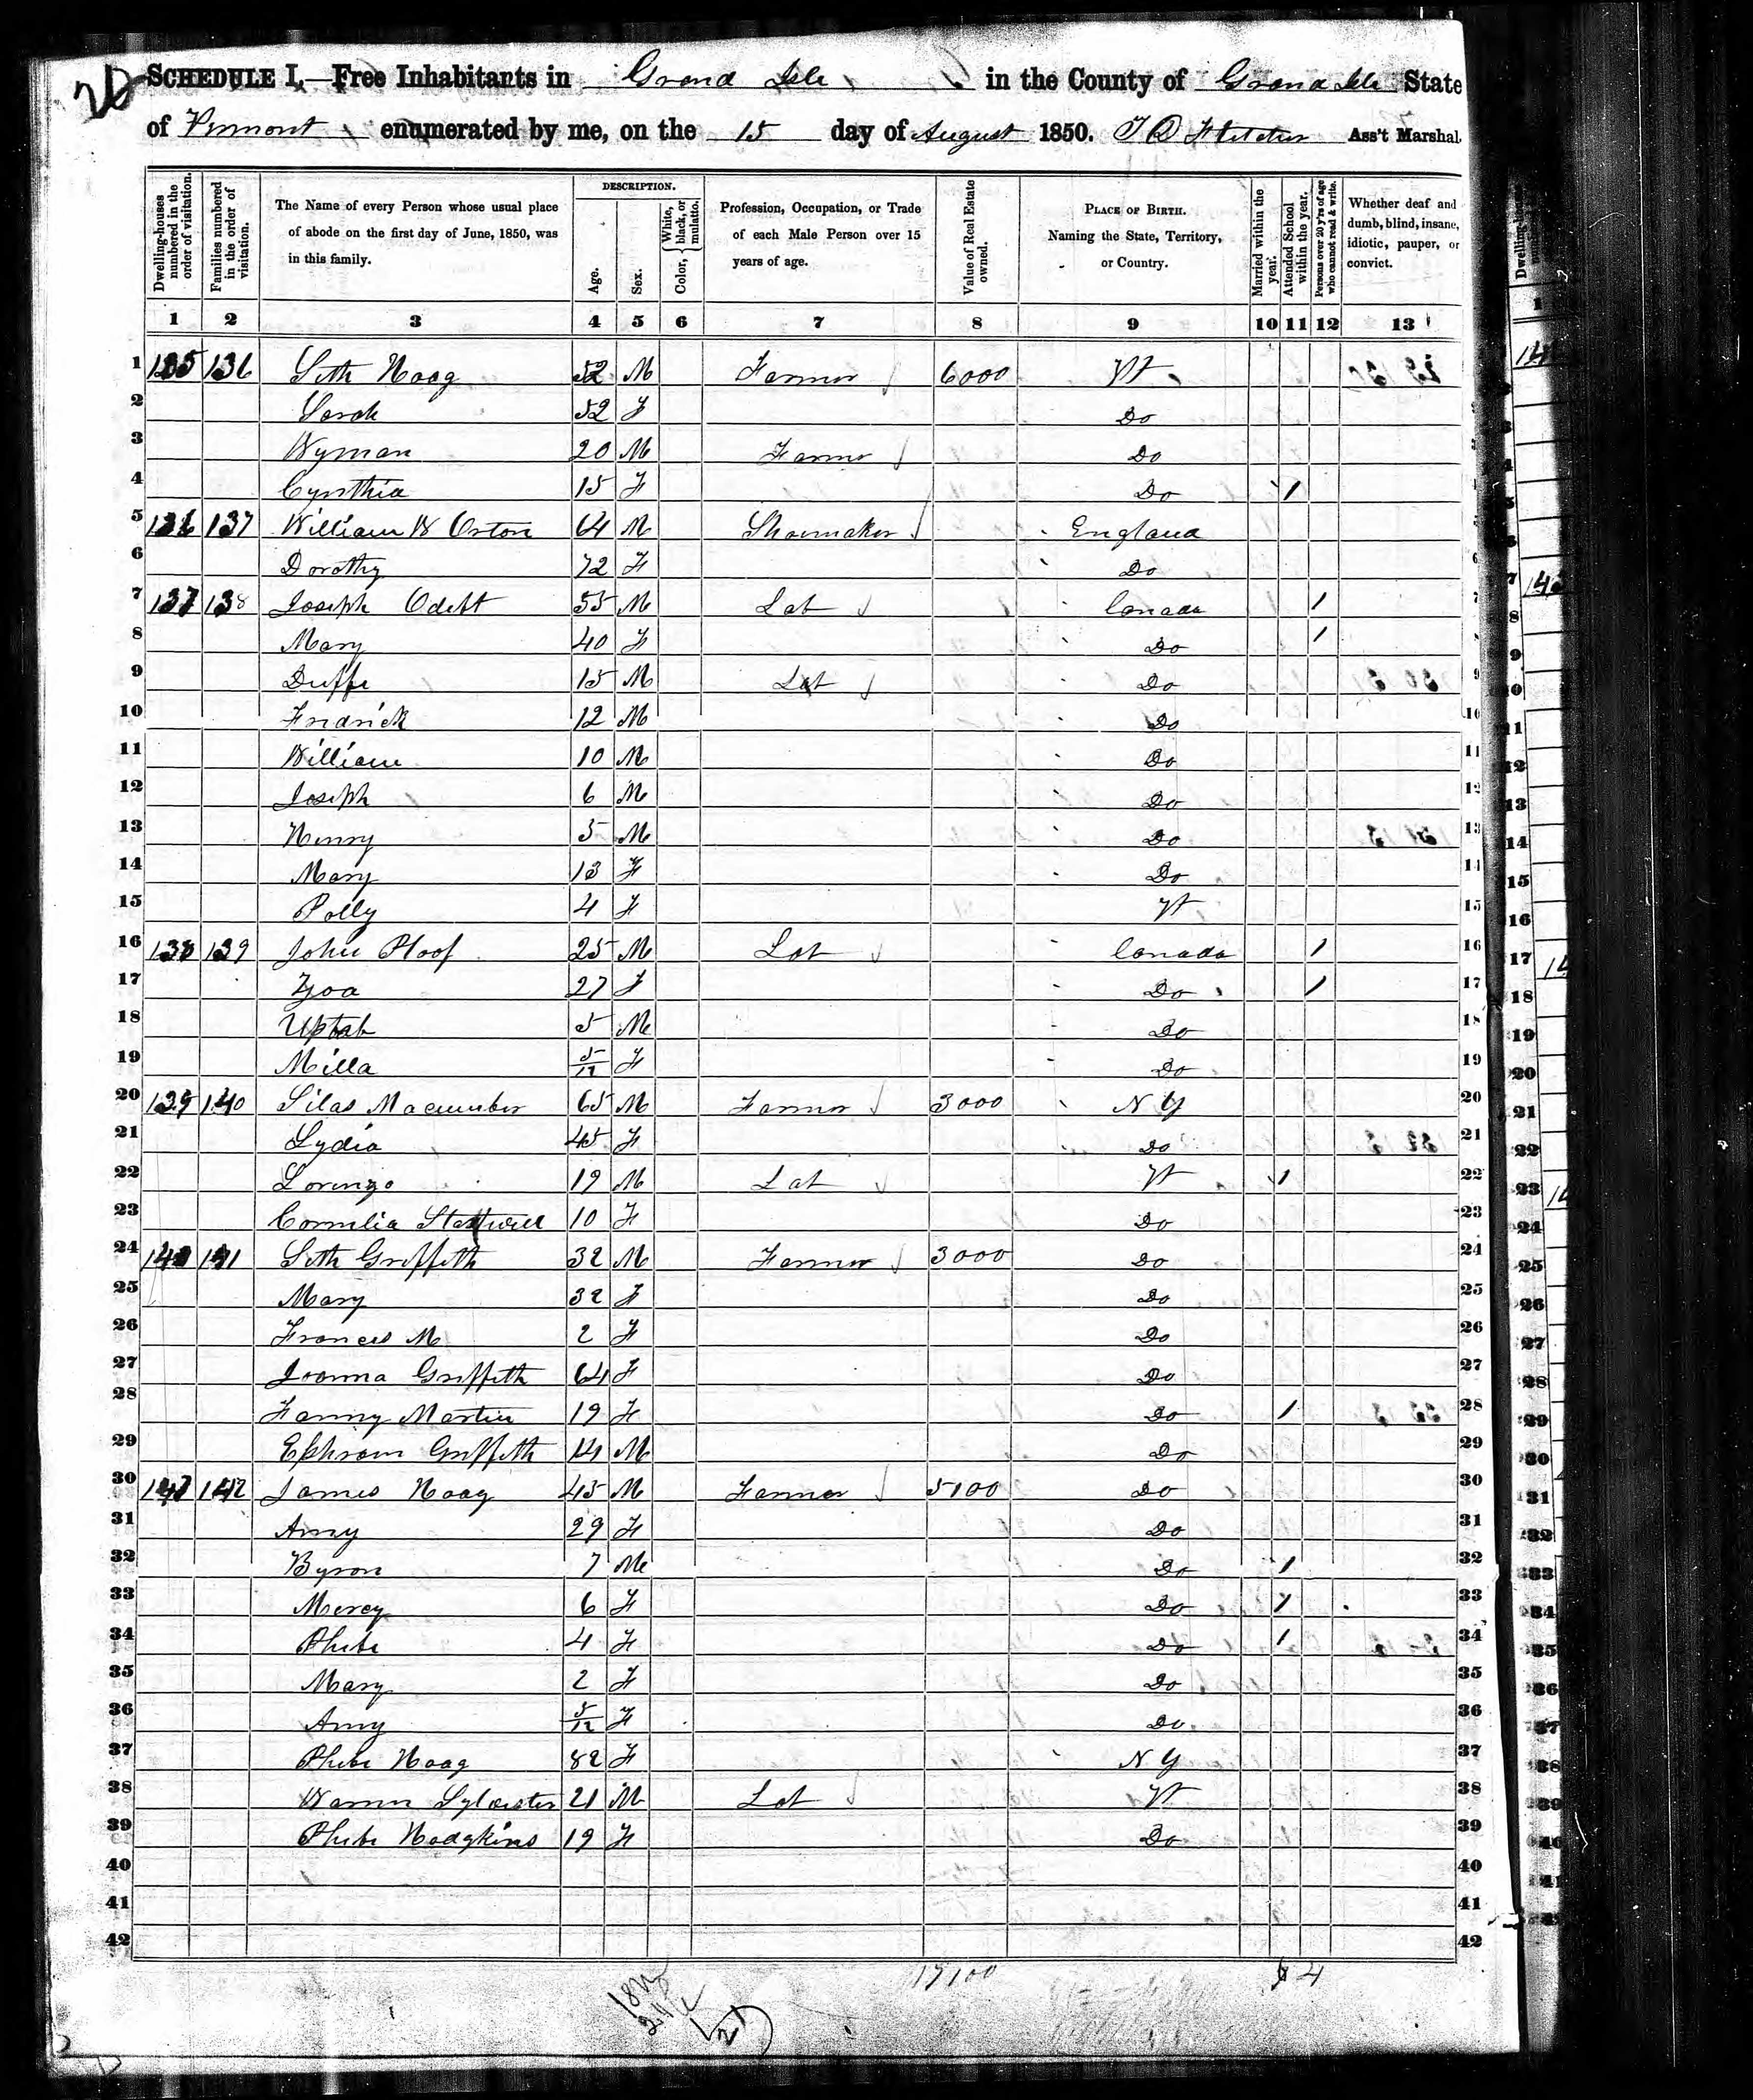 26
SCHEDULE I.—Free Inhabitants in Grand Isle in the County of Grand Isle State
of Vermont enumerated by me, on the 15 day of August 1850. Fletcher Ass't Marshal.
Dwelling-houses numbered in the order of visitation.
Families numbered in the order of visitation.
The Name of every Person whose usual place of abode on the first day of June, 1850, was in this family.
DESCRIPTION.
Age.
Sex.
Color, White, black, or mulatto.
Profession, Occupation, or Trade of each Male Person over 15 years of age.
Value of Real Estate owned.
PLACE OF BIRTH. Naming the State, Territory, or Country.
Married within the year.
Attended School within the year.
Persons over 20 y'rs of age who cannot read & write.
Whether deaf and dumb, blind, insane, idiotic, pauper, or convict.
1 2 3 4 5 6 7 8 9 10 11 12 13
1 135 136 Seth Hoag 52 M Farmer 6000 Vt
2 Sarah 52 F Do
3 Wyman 20 M Farmer Do
4 Cynthia 15 F Do / 
5 136 137 William W Orton 64 M Shoemaker England
6 Dorothy 72 F Do
7 137 138 Joseph Odett 55 M Lab Canada / 7
8 Mary 40 F Do /
9 Duffe 15 M Lab Do 9
10 Fredrick 12 M Do 10
11 William 10 M Do 11
12 Joseph 6 M Do 12
13 Henry 5 M Do 13
14 Mary 13 F Do 14
15 Polly 4 F Vt 15
16 138 139 John Ploof 25 M Lab Canada / 16
17 Zoa 27 F Do / 17
18 5 M Do 18
19 Milla 5/12 F Do 19
20 139 140 Silas Macumber 65 M Farmer 3000 N Y 20
21 Lydia 45 F Do 21
22 Lorenzo 19 M Lab Vt / 22
23 Cornelia 10 F Do 23
24 140 141 Seth Griffeth 32 M Farmer 3000 Do 24
25 Mary 32 F Do 25
26 Frances M 2 F Do 26
27 Joanna Griffeth 64 F Do 27
28 Fanny Martin 19 F Do / 28
29 Ephram Griffeth 14 M Do 29
30 141 142 James Hoag 45 M Farmer 5100 Do 30
31 Amy 29 F Do 31
32 Byron 7 M Do / 32
33 Mercy 6 F Do / 33
34 Phebe 4 F Do / 34
35 Mary 2 F Do 35
36 Amy 5/12 F Do 36
37 Phebe Hoag 82 F N Y 37
38 Warren Sylvester 21 M Lab Vt 38
39 Phebe Hodgkins 19 F Do 39
40 40
41 41
42 42
17100 4